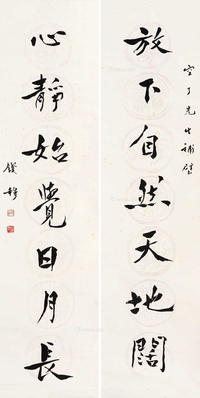 空了先生補壁
放下自然天地闊
心靜始覺日月長
錢穆